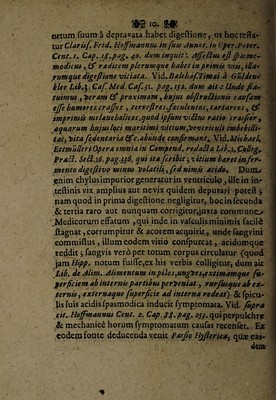 10.
ortum suum à depravata habet digestione, ut hoc testa-
tur Clarisf. Frid. Hoffmannus in suis Annot. in Oper. Poter.
Cent. 1. Cap. 18. pag. 40. dum inquit: Affectus est spasmo-
modicus, & radicem plerunque habet in primis viis, illa-
rumque digestione vitiata. Vid. Balthas. Timai à Gülden-
klee Lib. 3. Cas. Med. Cas. 31. pag. 152. dum ait: Unde sta-
tuimus, veram & proximam, hujus obstructionis causam
esse humores crassos, terrestres, fæculentos, tartareos, &
imprimis melancholicos, quod ipsum victus ratio crassior,
aquarum hujus loci maritimi vitium, ventriculi imbecilli-
tas, vita sedentaria &c. abunde confirmant. Vid. Michael.
Ettmülleri Opera omnia in Compend. redacta Lib. 2. Colleg.
Pract. Sect. 16. pag. 336. qui ita scribit; vitium haret in fer-
mento digestivo minus volatili, sed nimis acido. Dum e-
enim chylus impurior generatur in ventriculo, ille in in-
testinis vix amplius aut ne vix quidem depurari potest;
nam quod in prima digestione negligitur, hoc in secunda
& tertia raro aut nunquam corrigitur, juxta commune
Medicorum effatum, qui inde in vasculis minimis facilè
stagnat, corrumpitur & acorem acquirit, unde sangvini
commistus, illum eodem vitio conspurcat, acidumque
reddit; sangvis verò per totum corpus circulatur (quod
jam Hipp. notum fuisse, ex his verbis colligitur, dum ait
Lib. de Alim. Alimentum in pilos, ungves, extimamque su-
perficiem ab internis partibus pervenias, rursusque ab ex-
ternis, externaque superficie ad interna redeat) & spicu-
lis suis acidis spasmodica inducit symptomata. Vid. supra
cit. Hoffmannus Cent. 2. Cap. 88. pag. 253. qui perpulchre
& mechanicè horum symptomatum causas recenset. Ex
eodem fonte deducenda venit Passio Hysterica, quæ eas-
dem